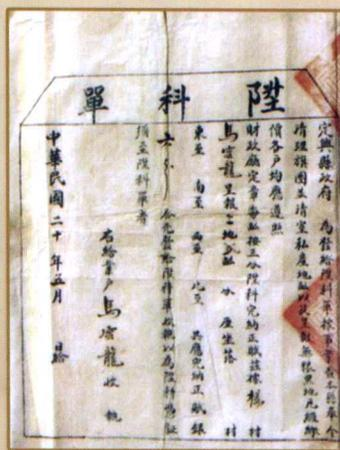 陞科單
定興縣政府 為發給陞科單據事查本縣奉令
清理旗圈並清室私產地畝以
價各戶均應遵照
財政廳定章每畝按三分陞科完納正賦茲據 村
馬雲龍呈報 地 畝 分 座落 村
東至 南至 西至 北至 共應完納正賦銀
合先發給陞科單收執以為陞科憑証
須至陞科單者
右給業戶馬雲龍收執
中華民國二十年五月 日給